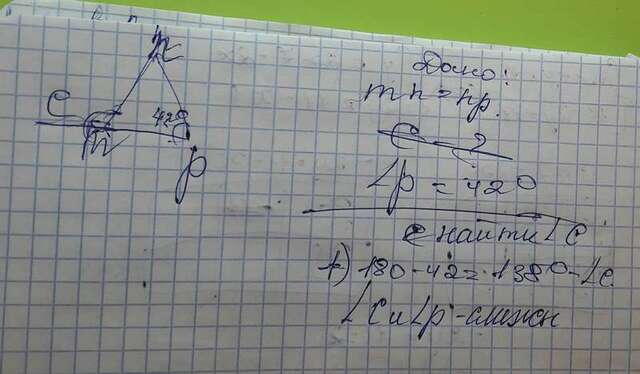 n
C
42°
m
p
Дано:
mn = np.
C - ?
∠p = 42°
найти ∠C
1) 180-42=138°-∠c.
∠C и ∠p - смежн